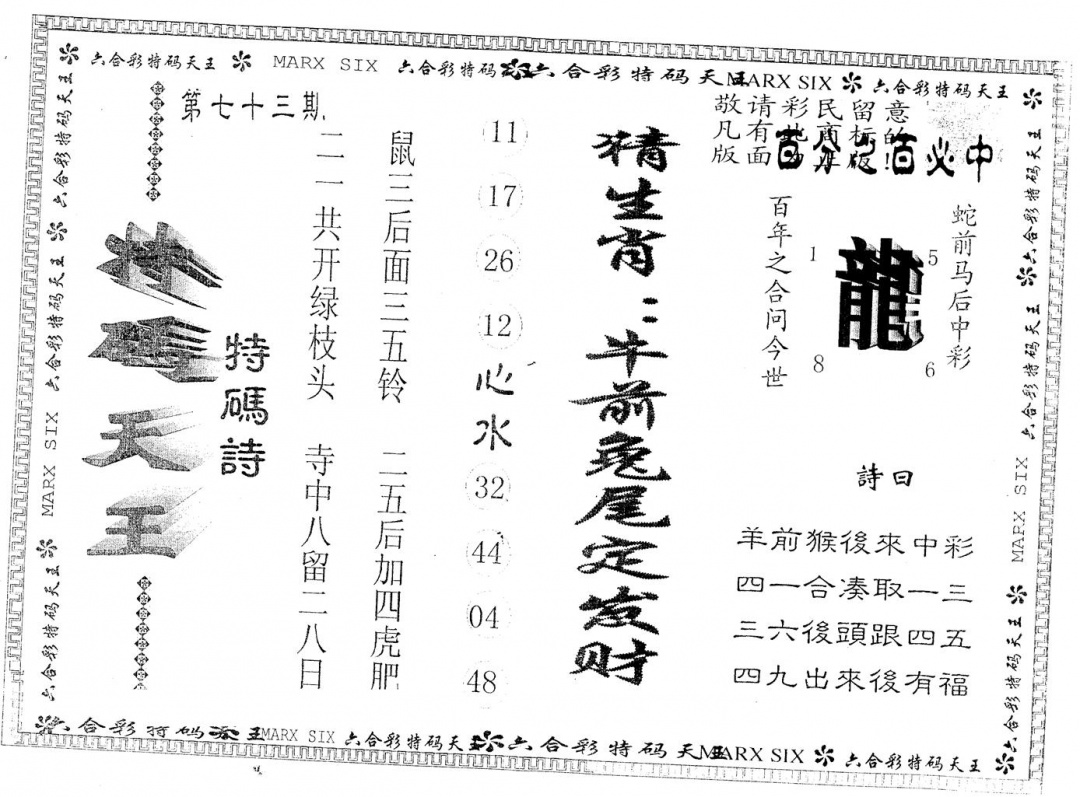 六合彩特码天王 MARX SIX 六合彩特码 六合彩特码天王 MARX SIX 六合彩特码天王
第七十三期
特碼天王
特碼詩
二一一共开绿枝头 寺中八留二八日
鼠三后面三五铃 二五后加四虎肥
11
17
26
12
心水
32
44
04
48
猜生肖：牛前兔尾定发财
敬请彩民留意
凡有此商标的
版面为正版！
百分之百必中
百年之合问今世
1
5
龍
8
6
蛇前马后中彩
詩曰
羊前猴後來中彩
四一合凑取一三
三六後頭跟四五
四九出來後有福
六合彩特码天王
MARX SIX
六合彩特码天王
六合彩特码天王
六合彩特码天王
六合彩特码天王
六合彩特码天王
MARX SIX
六合彩特码天王
六合彩特码天王 MARX SIX 六合彩特码天王 六合彩特码天王 MARX SIX 六合彩特码天王